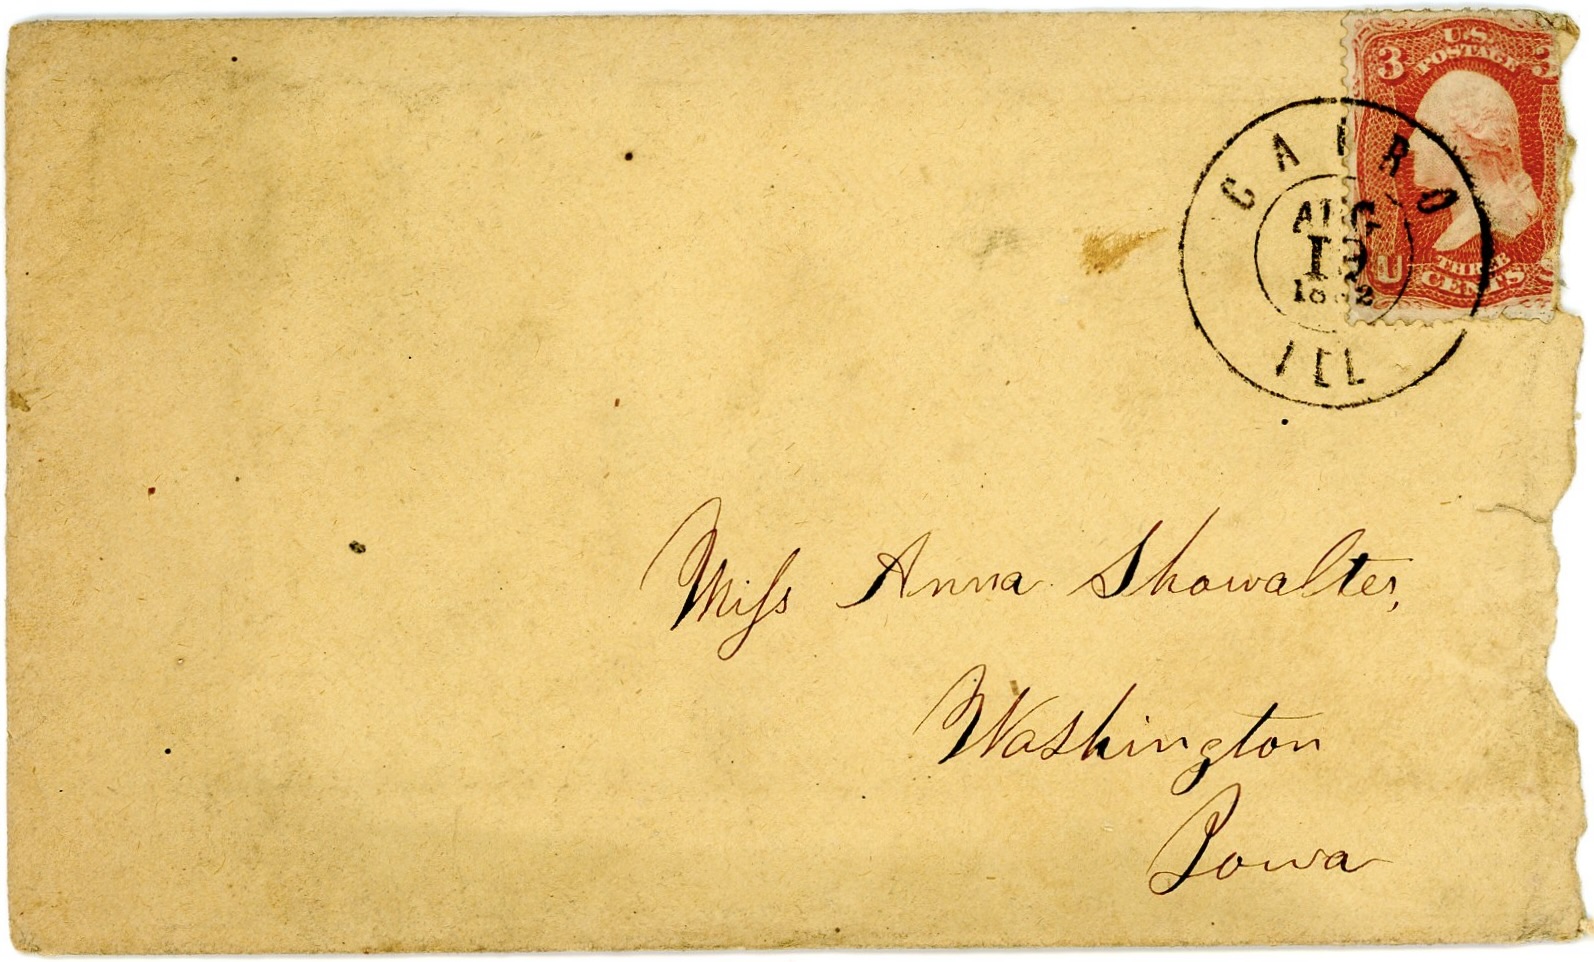 U.S.
POSTAGE
3 3
U
THREE
CENTS
CAIRO
AUG
1862
ILL
Miſs Anna Showalter,
Washington
Iowa